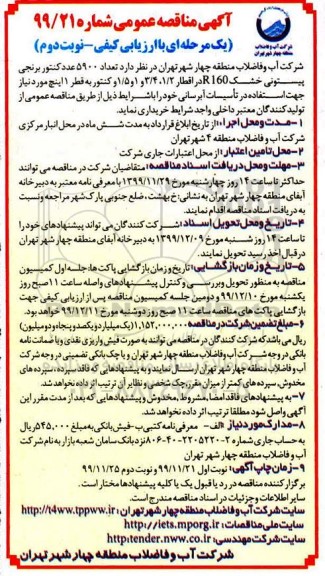 آگهی مناقصه عمومی شماره ۹۹/۲۱
(یک مرحله‌ای با ارزیابی کیفی - نوبت دوم)
شرکت آب و فاضلاب
منطقه چهار شهر تهران
شرکت آب و فاضلاب منطقه چهار شهر تهران در نظر دارد تعداد ۵۹۰۰ عدد کنتور برنجی
پیستونی خشک R160 در اقطار ۳/۴، ۱/۲ و ۱ و ۱/۵ و کنتور به قطر ۱ اینچ مورد نیاز
جهت استفاده در تأسیسات آبرسانی خود را با شرایط ذیل از طریق مناقصه عمومی از
تولید کنندگان معتبر داخلی واجد شرایط خریداری نماید.
۱- مدت و محل اجرا: از تاریخ ابلاغ قرارداد به مدت شش ماه در محل انبار مرکزی
شرکت آب و فاضلاب منطقه ۴ شهر تهران
۲- محل تامین اعتبار: از محل اعتبارات جاری شرکت
۳- مهلت و محل دریافت اسناد مناقصه: متقاضیان شرکت در مناقصه می توانند
حداکثر تا ساعت ۱۴ روز چهارشنبه مورخ ۱۳۹۹/۱۱/۲۹ با معرفی نامه معتبر به دبیرخانه
آبفای منطقه چهار شهر تهران به نشانی: خ بهشت، ضلع جنوبی پارک شهر مراجعه و نسبت
به دریافت اسناد مناقصه اقدام نمایند.
۴- تاریخ و محل تحویل اسناد: شرکت کنندگان می تواند پیشنهادهای خود را
تا ساعت ۱۴ روز شنبه مورخ ۱۳۹۹/۱۲/۰۹ به دبیرخانه آبفای منطقه چهار شهر تهران
در قبال اخذ رسید تحویل نمایند.
۵- تاریخ و زمان بازگشایی: تاریخ و زمان بازگشایی پاکت ها: جلسه اول کمیسیون
مناقصه به منظور تحویل و بررسی و کنترل پیشنهادهای واصله ساعت ۱۱ صبح روز
یکشنبه مورخ ۱۳۹۹/۱۲/۱۰ و دومین جلسه کمیسیون مناقصه پس از ارزیابی کیفی جهت
بازگشایی پاکت های مناقصه ساعت ۱۱ صبح روز دوشنبه مورخ ۱۳۹۹/۱۲/۱۱ خواهد بود.
۶- مبلغ تضمین شرکت در مناقصه: ۱,۱۵۲,۰۰۰,۰۰۰ (یک میلیارد و یکصد و پنجاه و دو میلیون)
ریال می باشد که شرکت کنندگان در مناقصه می توانند به صورت فیش واریزی نقدی و یا ضمانت نامه
بانکی در وجه شرکت آب و فاضلاب منطقه چهار شهر تهران و یا چک بانکی تضمینی در وجه شرکت
آب و فاضلاب منطقه چهار شهر تهران ارسال نمایند؛ به پیشنهادهای که فاقد سپرده، سپرده های
مخدوش، سپرده های کمتر از میزان مقرر، چک شخصی و نظایر آن ترتیب اثر داده نخواهد شد.
۷- به پیشنهادهای فاقد امضا، مشروط، مخدوش و پیشنهادهایی که بعد از مدت مقرر این
آگهی واصل شود مطلقا ترتیب اثر داده نخواهد شد.
۸- مدارک مورد نیاز: الف- معرفی نامه کتبی ب- فیش بانکی به مبلغ ۵۴۵,۰۰۰ ریال
به حساب جاری شماره ۲-۲۲۰۵۲۲۰-۴۰-۸۰۶ نزد بانک سامان شعبه بازار به نام شرکت
آب و فاضلاب منطقه چهار شهر تهران
۹- زمان چاپ آگهی: نوبت اول ۹۹/۱۱/۲۱ و نوبت دوم ۹۹/۱۱/۲۵
برگزار کننده مناقصه در رد یا قبول یک یا کلیه پیشنهادها مختار است.
سایر اطلاعات و جزئیات در اسناد مناقصه مندرج است.
سایت شرکت آب و فاضلاب منطقه چهار شهر تهران: http://t4ww.tppww.ir
سایت ملی مناقصات: http://iets.mporg.ir
سایت شرکت مهندسی: http:tender.nww.co.ir
شرکت آب و فاضلاب منطقه چهار شهر تهران